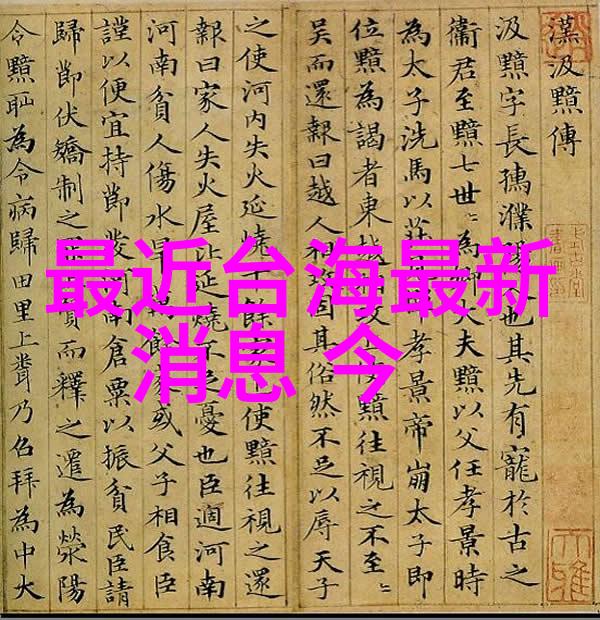 漢汲黯傳
汲黯字長孺濮陽人也其先有寵於古之
衞君至黯七世〻為卿大夫黯以父任孝景時
為太子洗馬以莊孝景帝崩太子即
位黯為謁者東越相攻上使黯往視之不至〻
吳而還報曰越人相攻固其俗然不足以辱天子
之使河内失火延燒千餘家上使黯往視之還
報曰家人失火屋比延燒不足憂也臣過河南
河南貧人傷水旱萬餘家或父子相食臣
謹以便宜持節發河南倉粟以振貧民臣請
歸節伏矯制之罪上賢而釋之遷為滎陽
令黯恥為令病歸田里上聞乃召拜為中大
最近台海最新
消息 今